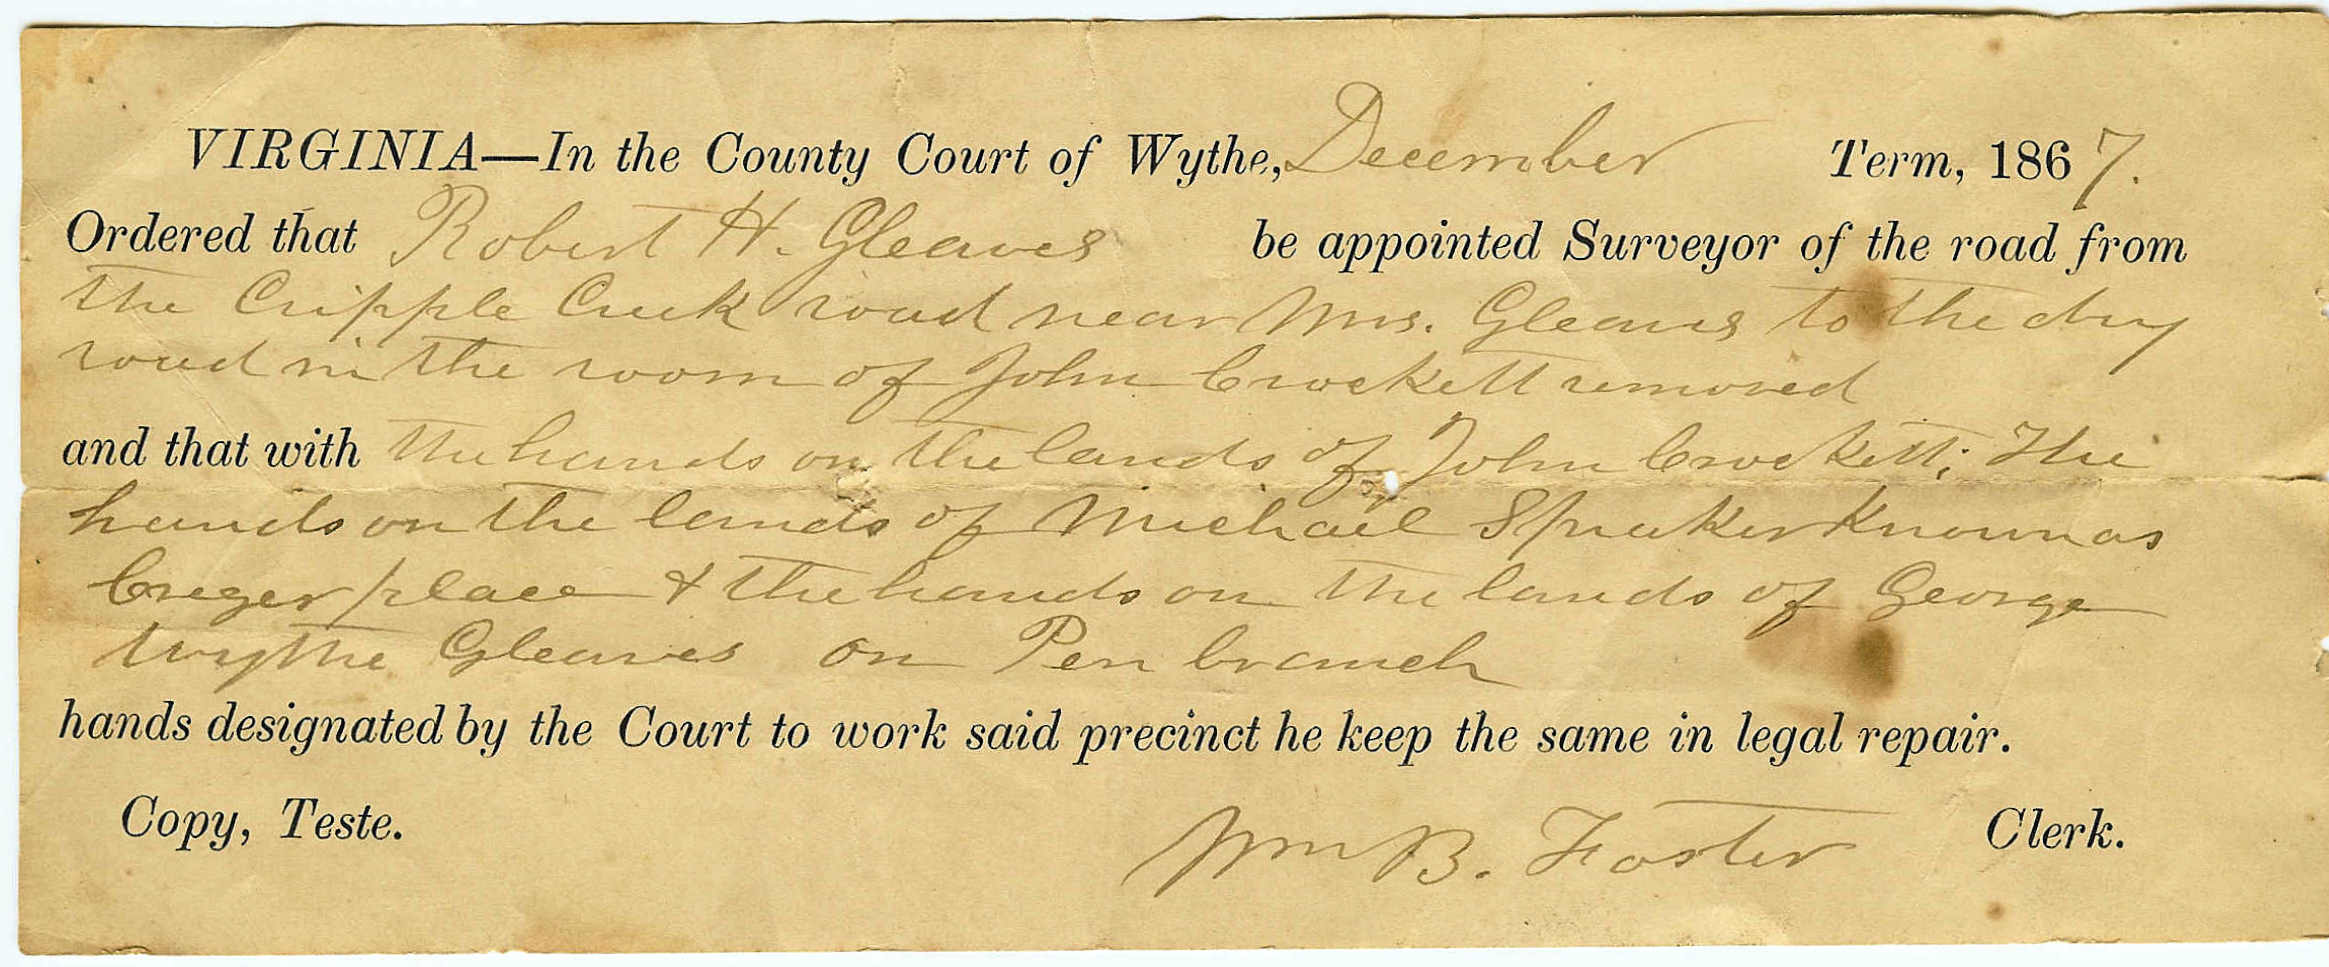 VIRGINIA—In the County Court of Wythe, December Term, 1867.
Ordered that Robert H. Gleaves be appointed Surveyor of the road from
the Cripple Creek road near Mrs. Gleaves to the dry
road in the room of John Crockett removed
and that with the hands on the lands of John Crockett; The
hands on the lands of Michael Spraker Known as
Creger place & the hands on the lands of George
Wythe Gleaves on Pen branch
hands designated by the Court to work said precinct he keep the same in legal repair.
Copy, Teste. Wm B. Foster Clerk.